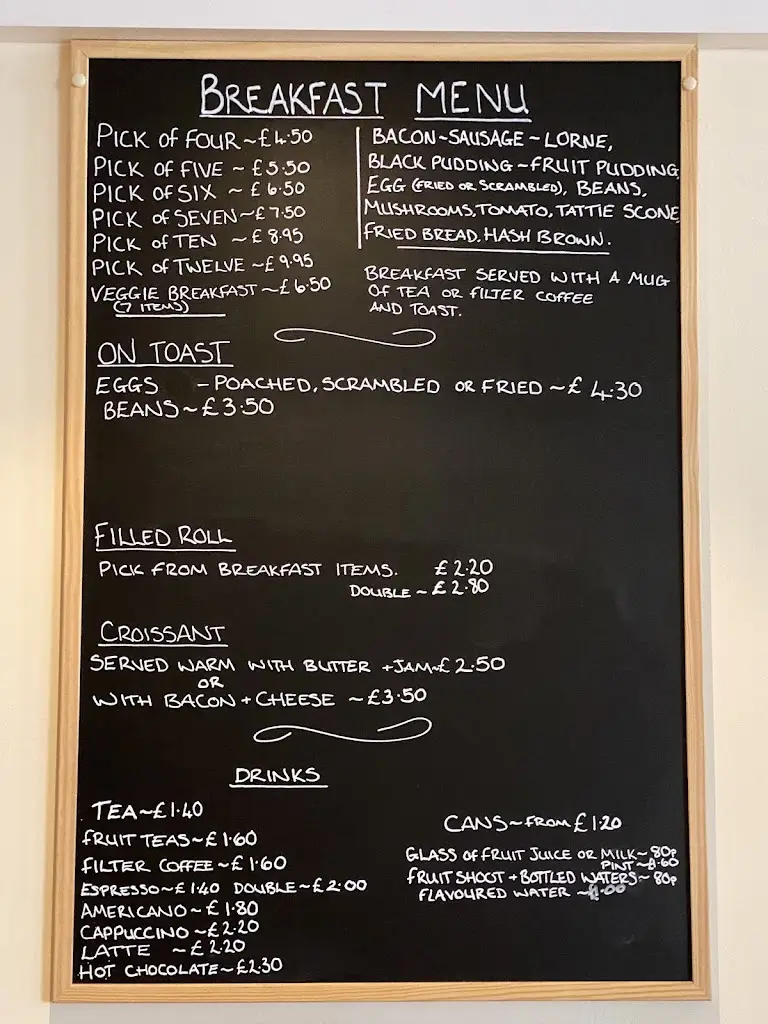 BREAKFAST MENU
PICK OF FOUR ~ £4.50
PICK OF FIVE ~ £5.50
PICK OF SIX ~ £6.50
PICK OF SEVEN ~ £7.50
PICK OF TEN ~ £8.95
PICK OF TWELVE ~ £9.95
VEGGIE BREAKFAST ~ £6.50
(7 ITEMS)
BACON ~ SAUSAGE ~ LORNE,
BLACK PUDDING ~ FRUIT PUDDING,
EGG (FRIED OR SCRAMBLED), BEANS,
MUSHROOMS, TOMATO, TATTIE SCONE,
FRIED BREAD, HASH BROWN.
BREAKFAST SERVED WITH A MUG
OF TEA OR FILTER COFFEE
AND TOAST.
ON TOAST
EGGS - POACHED, SCRAMBLED OR FRIED ~ £4.30
BEANS ~ £3.50
FILLED ROLL
PICK FROM BREAKFAST ITEMS. £2.20
DOUBLE ~ £2.80
CROISSANT
SERVED WARM WITH BUTTER + JAM ~ £2.50
OR
WITH BACON + CHEESE ~ £3.50
DRINKS
TEA ~ £1.40
FRUIT TEAS ~ £1.60
FILTER COFFEE ~ £1.60
ESPRESSO ~ £1.40 DOUBLE ~ £2.00
AMERICANO ~ £1.80
CAPPUCCINO ~ £2.20
LATTE ~ £2.20
HOT CHOCOLATE ~ £2.30
CANS ~ FROM £1.20
GLASS OF FRUIT JUICE OR MILK ~ 80p
PINT ~ £1.60
FRUIT SHOOT + BOTTLED WATERS ~ 80p
FLAVOURED WATER ~